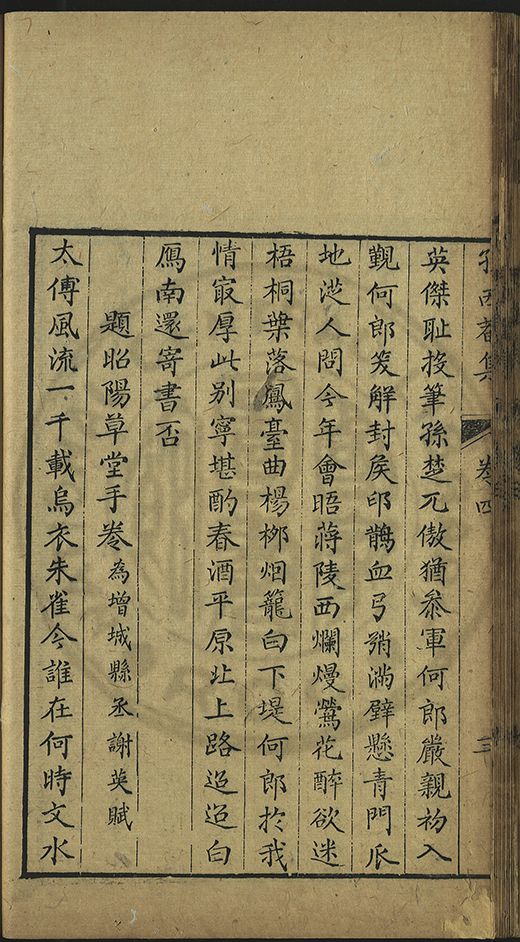 孫西菴集 卷四 三
英傑耻投筆孫楚兀傲猶叅軍何郎嚴親初入
覲何郎笑解封矦印鵲血弓弰滿壁懸青門瓜
地逆人問今年會晤蔣陵西爛熳鶯花醉欲迷
梧桐葉落鳳臺曲楊栁烟籠白下堤何郎於我
情㝡厚此别寧堪酌春酒平原北上路迢迢白
鴈南還寄書否
題昭陽草堂手卷為增城縣丞謝英賦
太傅風流一千載烏衣朱雀今誰在何時文水